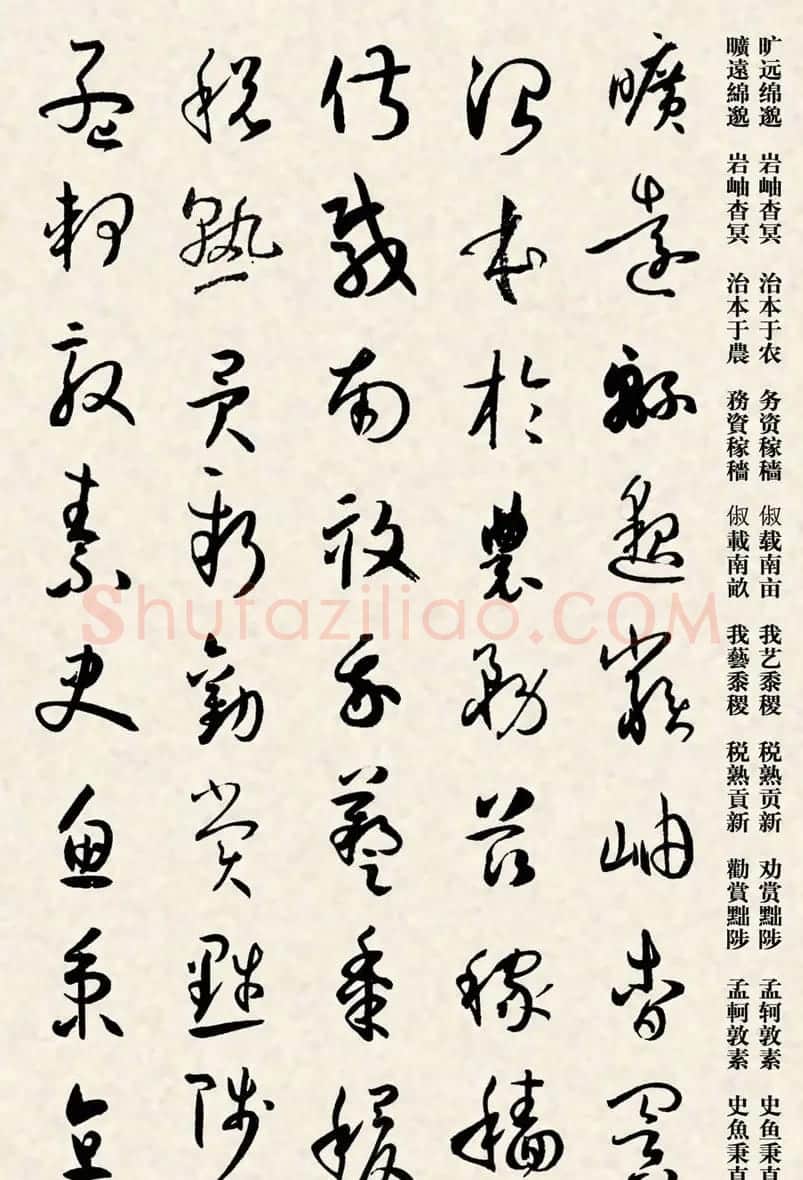 旷远绵邈 岩岫杳冥 治本于农 务资稼穑 俶载南亩 我艺黍稷 税熟贡新 劝赏黜陟 孟轲敦素 史鱼秉直
曠遠綿邈 岩岫杳冥 治本于農 務資稼穡 俶載南畝 我藝黍稷 税熟貢新 勸賞黜陟 孟軻敦素 史魚秉直
曠遠緜邈巖岫杳冥
治本於農務茲稼穡
俶載南畝我藝黍稷
稅熟貢新勸賞黜陟
孟軻敦素史魚秉直
Shufaziliao.COM